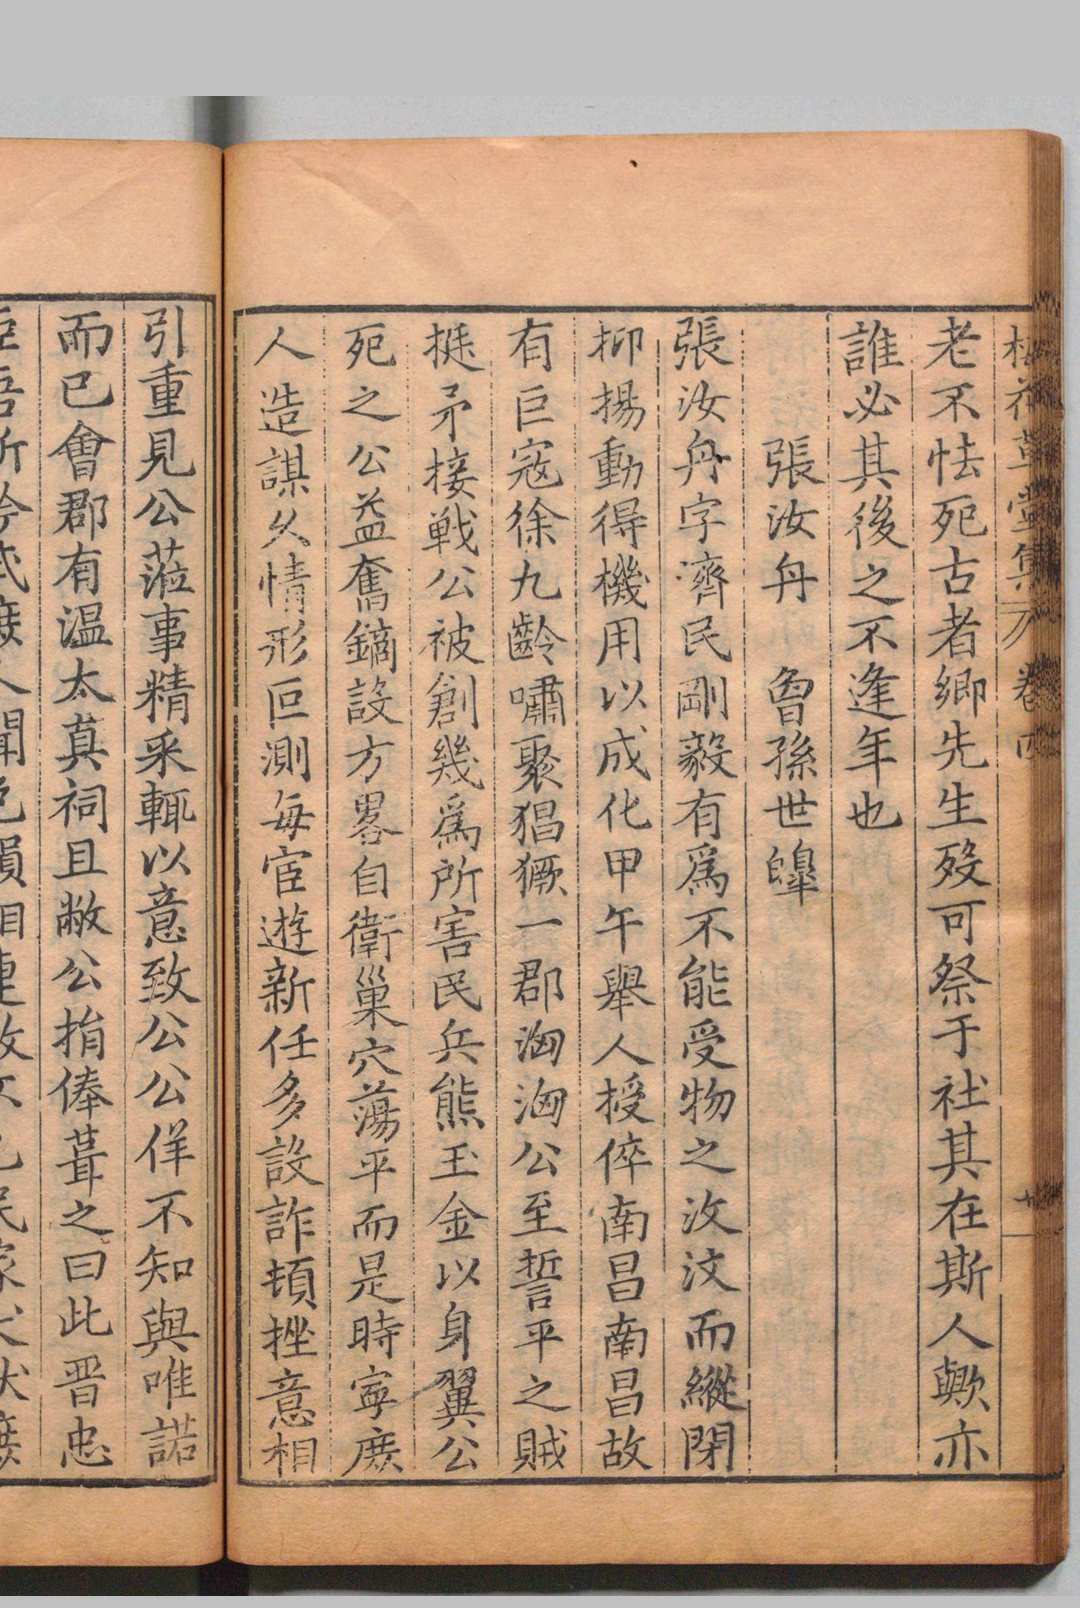 老不怯死古者鄉先生歿可祭于社其在斯人歟亦
誰必其後之不逢年也
張汝舟 曾孫世皥
張汝舟字濟民剛毅有爲不能受物之汶汶而縱閉
抑揚動得機用以成化甲午舉人授倅南昌南昌故
有巨寇徐九齡嘯聚猖獗一郡洶洶公至誓平之賊
挺矛接戰公被創幾爲所害民兵熊玉金以身翼公
死之公益奮鏑設方畧自衛巢穴蕩平而是時寧庶
人造謀久情形叵測每宦遊新任多設詐頓挫意相
引重見公蒞事精采輒以意致公公佯不知與唯諾
而已會郡有温太真祠且敝公捐俸葺之曰此晋忠